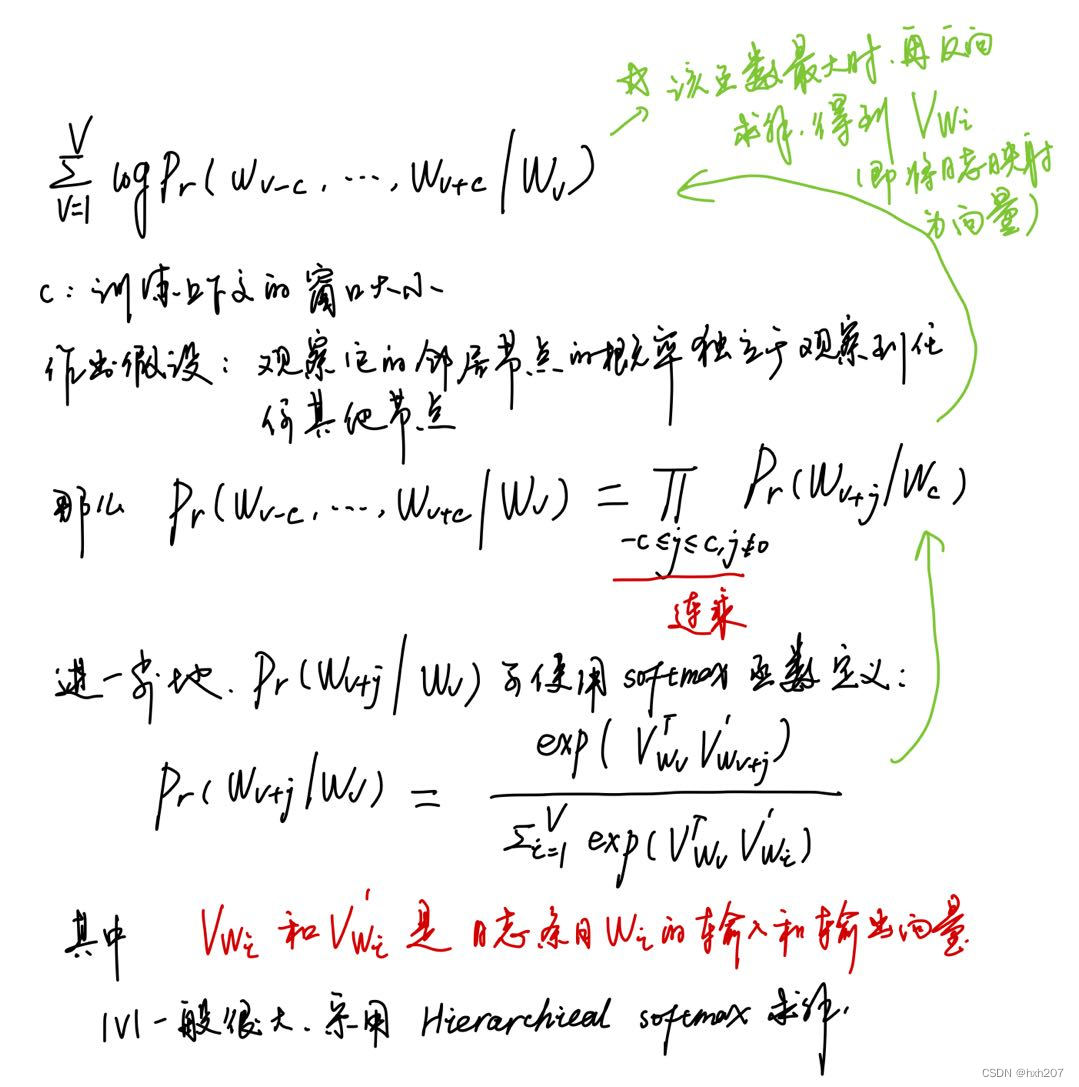 求该函数最大时,再反向
求解,得到 V_{W_i}
(即将日志映射
为向量)
\sum_{v=1}^{V} log Pr(W_{v-c}, ..., W_{v+c} / W_v)
c:训练上下文的窗口大小
作出假设:观察它的邻居节点的概率独立于观察到任
何其他节点
那么 Pr(W_{v-c}, ..., W_{v+c} / W_v) = \prod_{-c≤j≤c, j≠0} Pr(W_{v+j} / W_c)
连乘
进一步地, Pr(W_{v+j} / W_v) 可使用 softmax 函数定义:
Pr(W_{v+j} / W_v) = \frac{exp(V_{W_v}^T V'_{W_{v+j}})}{\sum_{i=1}^{V} exp(V_{W_v}^T V'_{W_i})}
其中 V_{W_i} 和 V'_{W_i} 是日志条目 W_i 的输入和输出向量
|V|一般很大,采用 Hierarchical softmax 求解.
CSDN @hxh207